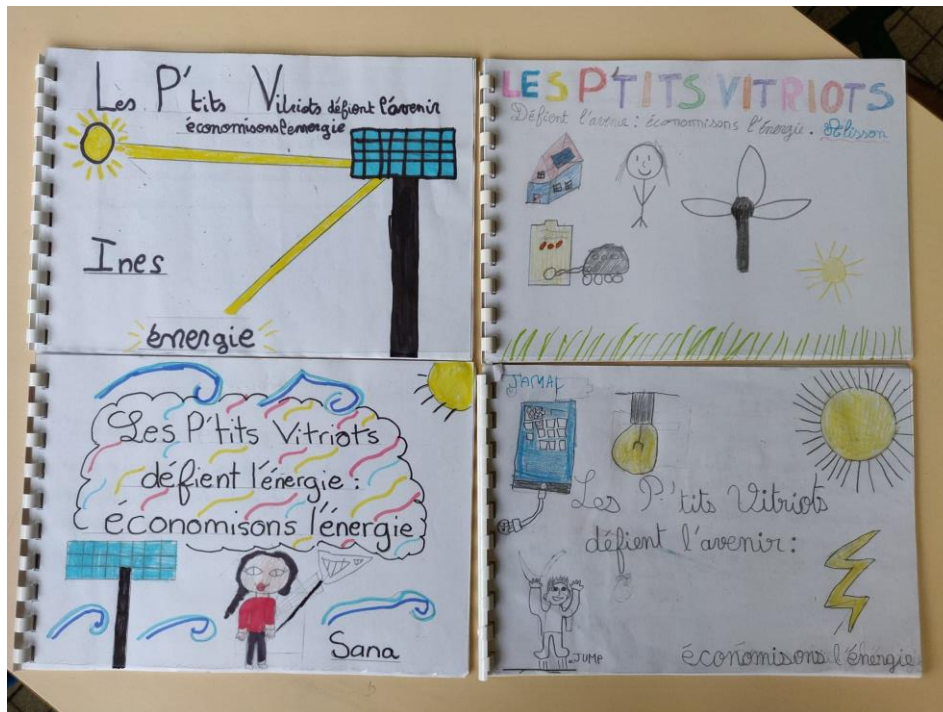 Les P'tits Vitriots défient l'avenir
économisons l'énergie
Ines
énergie
LES P'TITS VITRIOTS
Défient l'avenir : économisons l'énergie.
Les P'tits Vitriots
défient l'énergie :
économisons l'énergie
Sana
JAMAL
Les P'tits Vitriots
défient l'avenir :
JUMP
économisons l'énergie